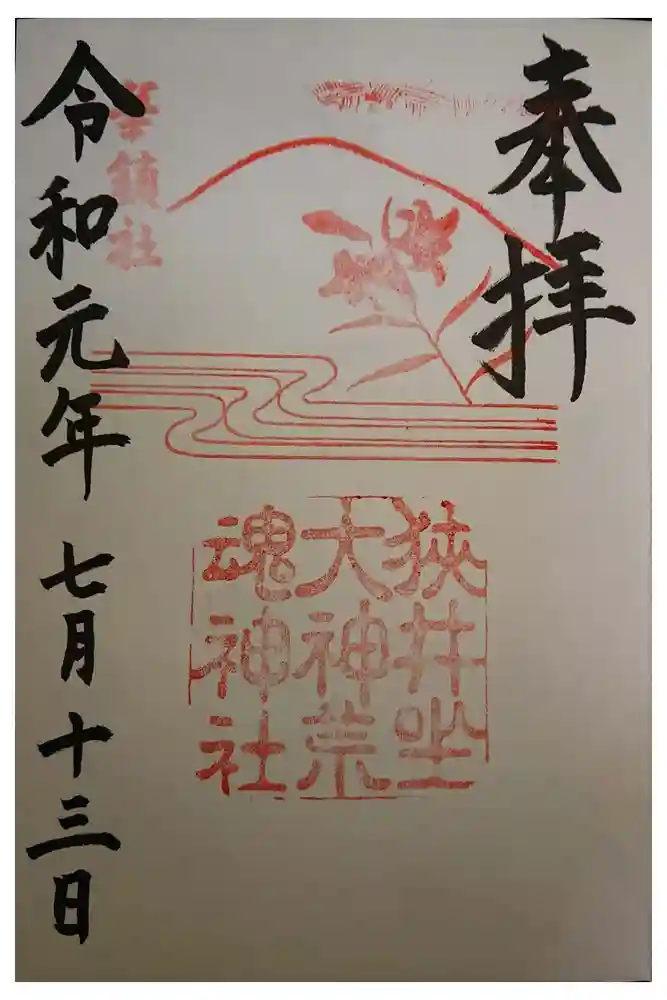 奉拝
狭井坐
大神荒
魂神社
華鎮社
令和元年 七月十三日